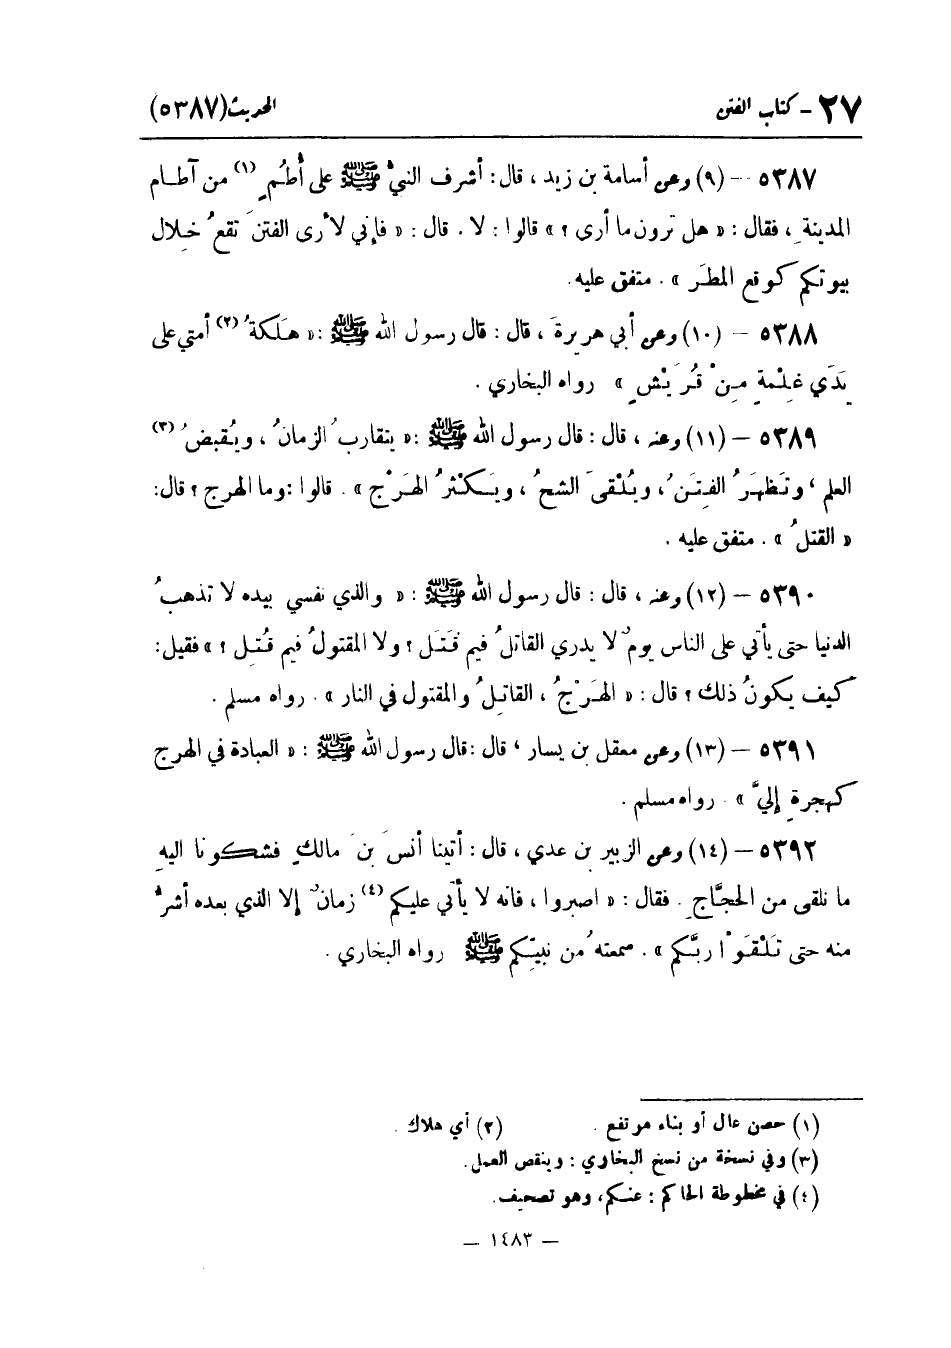 ٢٧ - كتاب الفتن الحديث (٥٣٨٧)
٥٣٨٧ - (٩) وعن أسامة بن زيد ، قال : أشرف النبيُّ ﷺ على أُطُمٍ (١) من آطام
المدينةِ ، فقال : « هل ترون ما أرى ؟ » قالوا : لا . قال : « فإني لأرى الفتنَ تقعُ خلال
بيوتكم كوقع المطَر » . متفق عليه .
٥٣٨٨ - (١٠) وعن أبي هريرةَ ، قال : قال رسول الله ﷺ : « هَلَكةُ (٢) أمتي على
يَدَي غِلْمةٍ مِنْ قُرَيْشٍ » رواه البخاري .
٥٣٨٩ - (١١) وعنه ، قال : قال رسول الله ﷺ : « يتقاربُ الزمانُ ، ويُقبضُ (٣)
العلم ، وتَظهَرُ الفِتَنُ ، ويُلْقىَ الشحُ ، ويَكْثرُ الهَرْج » . قالوا : وما الهرج ؟ قال :
« القتلُ » . متفق عليه .
٥٣٩٠ - (١٢) وعنه ، قال : قال رسول الله ﷺ : « والذي نفسي بيده لا تذهبُ
الدنيا حتى يأتي على الناس يومٌ لا يدري القاتلُ فيم قَتَل ؟ ولا المقتولُ فيم قُتِل ؟ » فقيل :
كيف يكونُ ذلك ؟ قال : « الهَرْجُ ، القاتِلُ والمقتول في النار » . رواه مسلم .
٥٣٩١ - (١٣) وعن معقل بن يسار ، قال : قال رسول الله ﷺ : « العبادة في الهرج
كهجرةٍ إليَّ » . رواه مسلم .
٥٣٩٢ - (١٤) وعن الزبير بن عدي ، قال : أتينا أنسَ بنَ مالكٍ فشكونا اليهِ
ما نلقى من الحجَّاجِ . فقال : « اصبروا ، فانه لا يأتي عليكم (٤) زمانٌ إلا الذي بعده أشرُّ
منه حتى تَلْقَوْا ربَّكم » . سمعتهُ من نبيِّكم ﷺ رواه البخاري .
(١) حصن عال أو بناء مرتفع . (٢) أي هلاك .
(٣) وفي نسخة من نسخ البخاري : وينقص العمل .
(٤) في مخطوطة الحاكم : عنكم، وهو تصحيف .
- ١٤٨٣ -